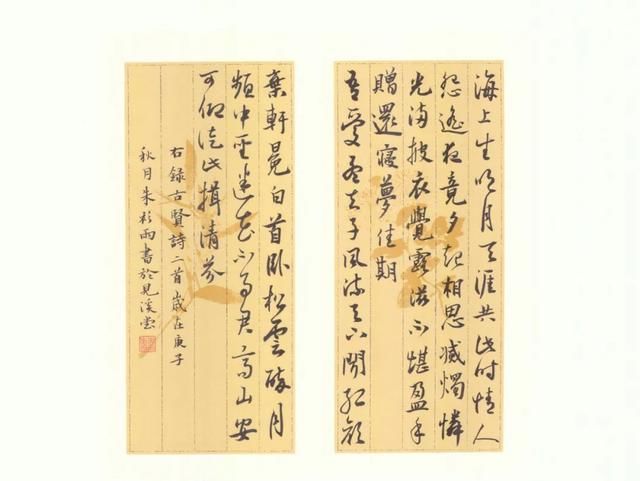 海上生明月天涯共此時情人
怨遙夜竟夕起相思滅燭憐
光滿披衣覺露滋不堪盈手
贈還寢夢佳期
吾愛孟夫子風流天下聞紅顏
棄軒冕白首臥松雲醉月
頻中聖迷花不事君高山安
可仰徒此揖清芬
右録古賢詩二首歲在庚子
秋月朱杉雨書於見溪堂